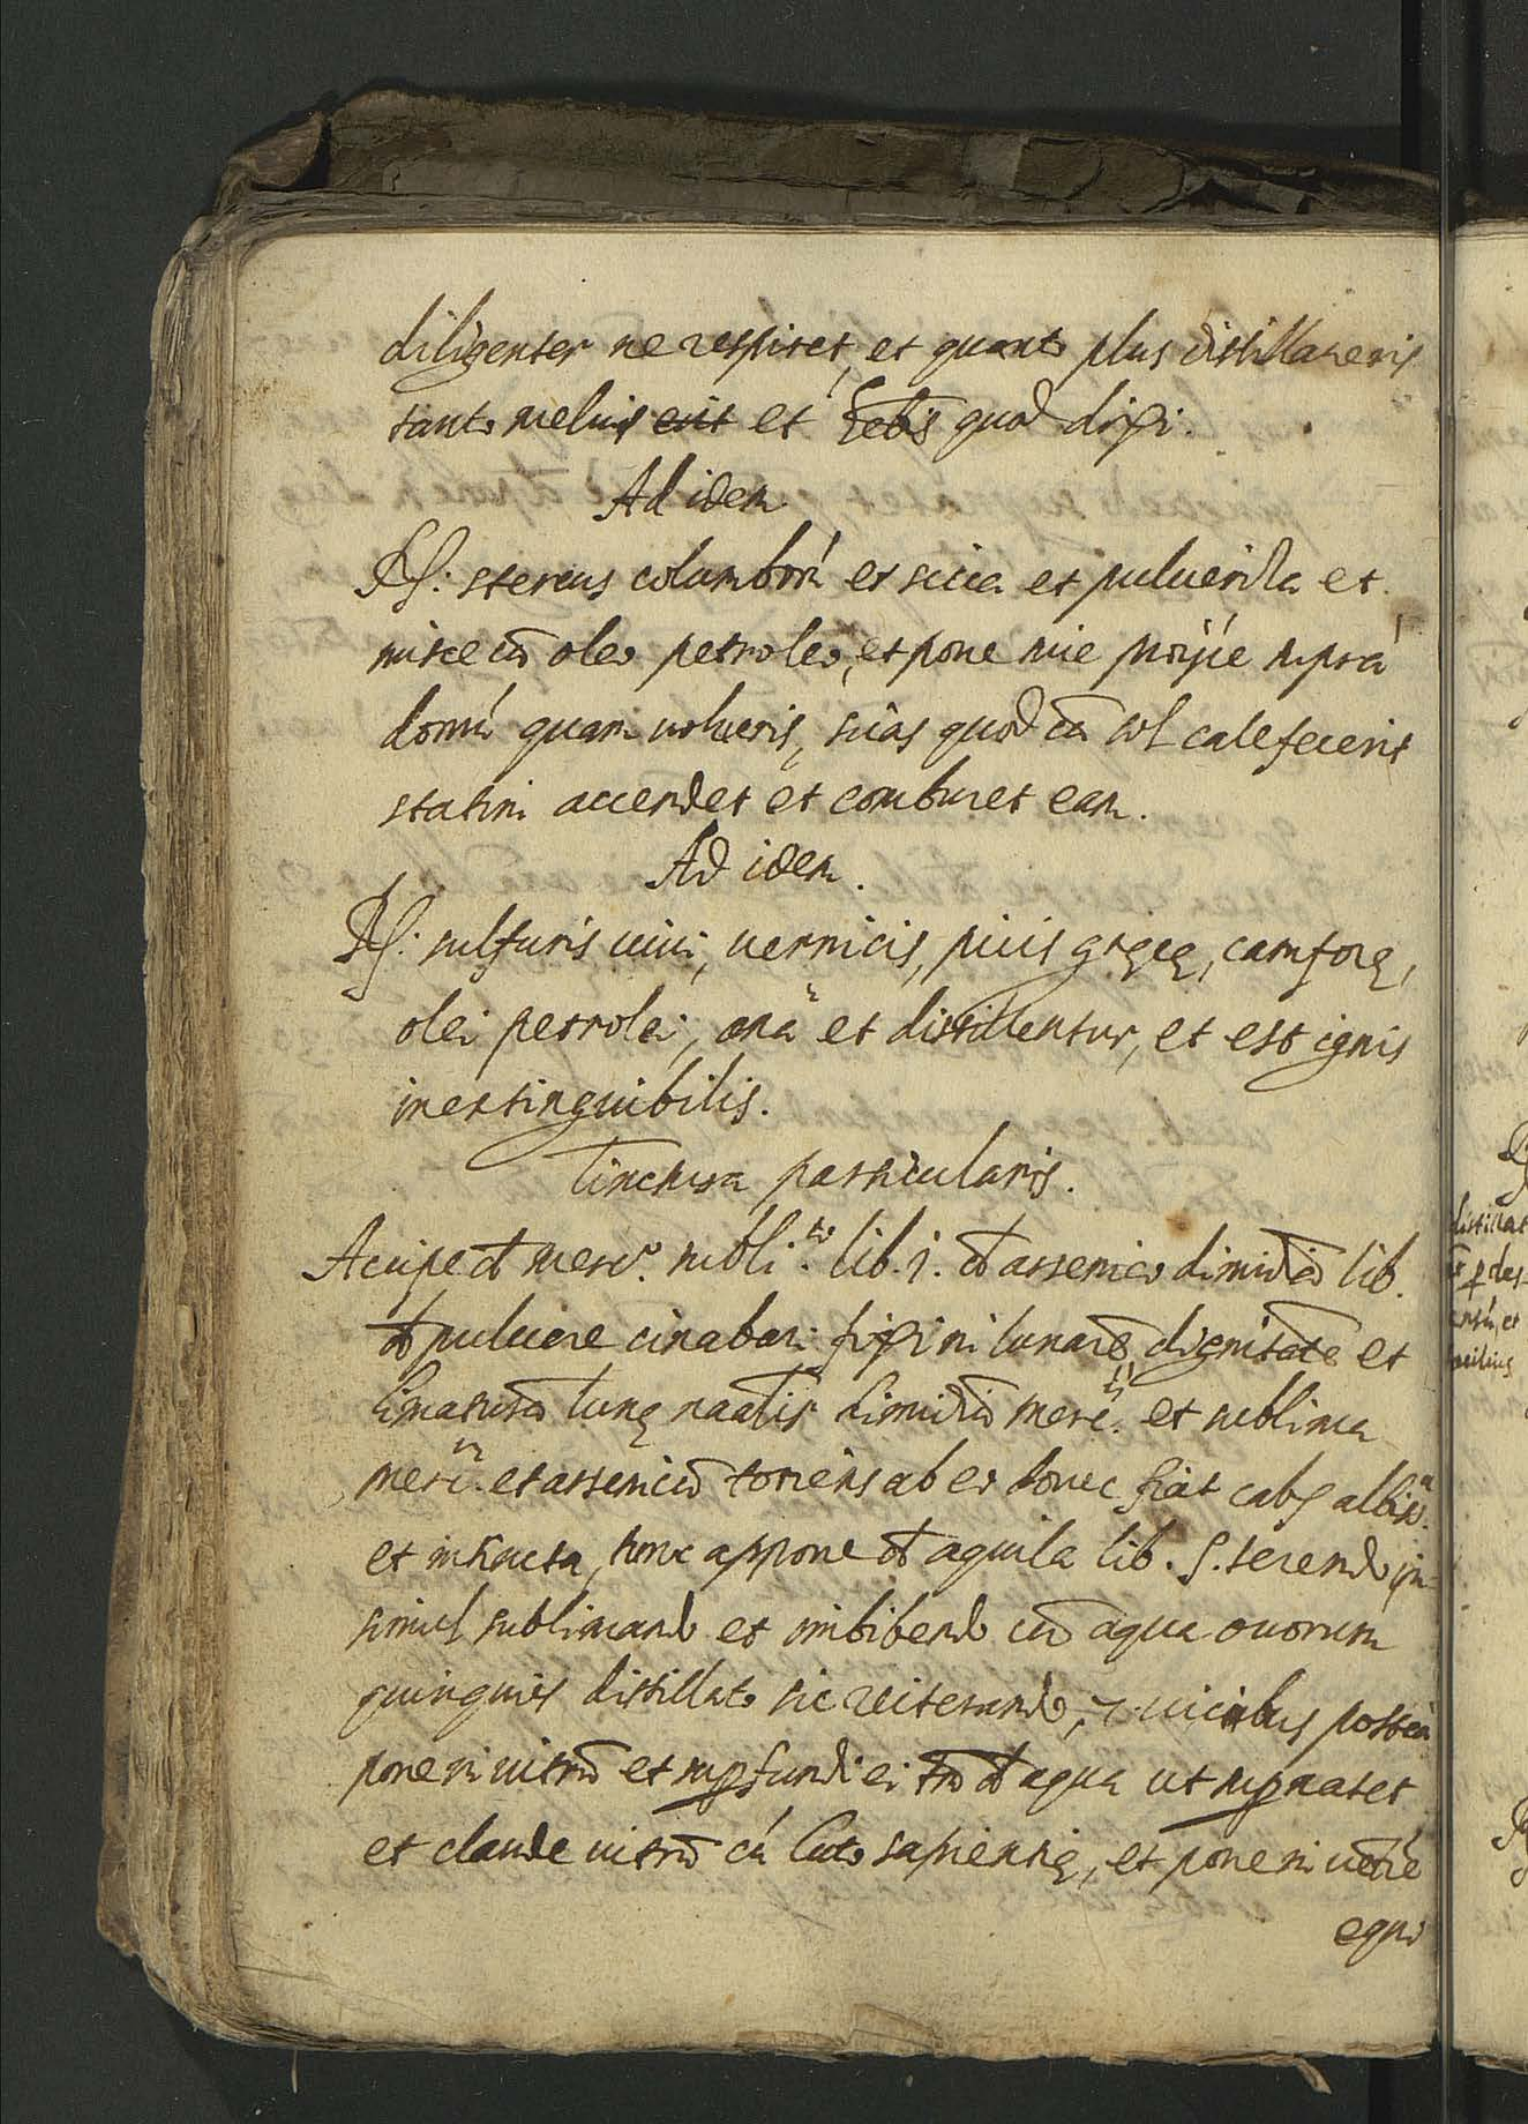 diligenter ne respiret, et quanto plus distillaueris
tanto melius erit et hēbis quod dixi.
Ad idem
R/: stercus columborū et sicca et pulueriza et
misce cū oleo petroleo, et pone siue proijce suprà
domū quam uolueris, scias quod cū sol calefecerit
statim accendet et comburet eam.
Ad idem.
R/: sulfuris uiui, uernicis, picis gręcę, camforę,
olei petrolei, anā et distillentur, et est ignis
inextinguibilis.
Tinctura particularis.
Accipe d merc. subli.to lib. j. d arsenico dimidiā lib.
d puluere cinabari fixi in lunarē dignitatē et
limaturā lunę dimidiū merc. et sublima
merc. et arsenicū totiens ab eo donec fiat calx
et, tunc appone d aquila lib. s. terendo in-
simul sublimando et imbibendo cū aqua ouorum
quinquies distillato sic reiterando, 7. uicibus posteà
pone in uitrō et suprfundi ei d aqua ut suprnatet
et claude uitrū cū luto sapientię, et pone in uētre
equi
distillat
p des-
ensū, et